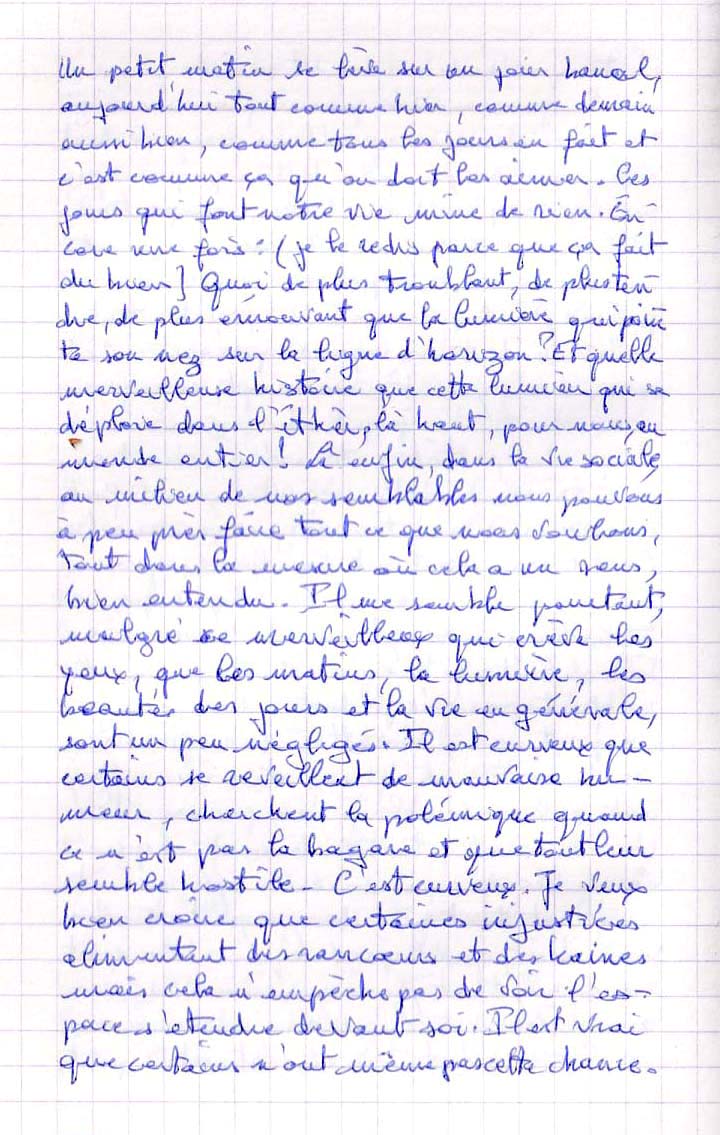 Un petit matin se lève sur un jour banal,
aujourd'hui tout comme hier, comme demain
aussi bien, comme tous les jours en fait et
c'est comme ça qu'on doit les aimer. Ces
jours qui font notre vie mine de rien. En-
core une fois : (je le redis parce que ça fait
du bien) Quoi de plus troublant, de plus ten
dre, de plus émouvant que la lumière qui poin
te son nez sur la ligne d'horizon ? Et quelle
merveilleuse histoire que cette lumière qui se
déploie dans l'éther, là haut, pour nous, au
monde entier ! Là enfin, dans la vie sociale,
au milieu de nos semblables nous pouvons
à peu près faire tout ce que nous voulons,
tout dans la mesure où cela a un sens,
bien entendu. Il me semble pourtant,
malgré ce merveilleux qui crève les
yeux, que les matins, la lumière, les
beautés des jours et la vie en générale,
sont un peu négligés. Il est curieux que
certains se reveillent de mauvaise hu-
meur, cherchent la polémique quand
ce n'est pas la bagare et que tout leur
semble hostile - C'est curieux. Je veux
bien croire que certaines injustices
alimentent des rancœurs et des haines
mais cela n'empêche pas de voir l'es-
pace s'étendre devant soi. Il est vrai
que certains n'ont même pas cette chance.